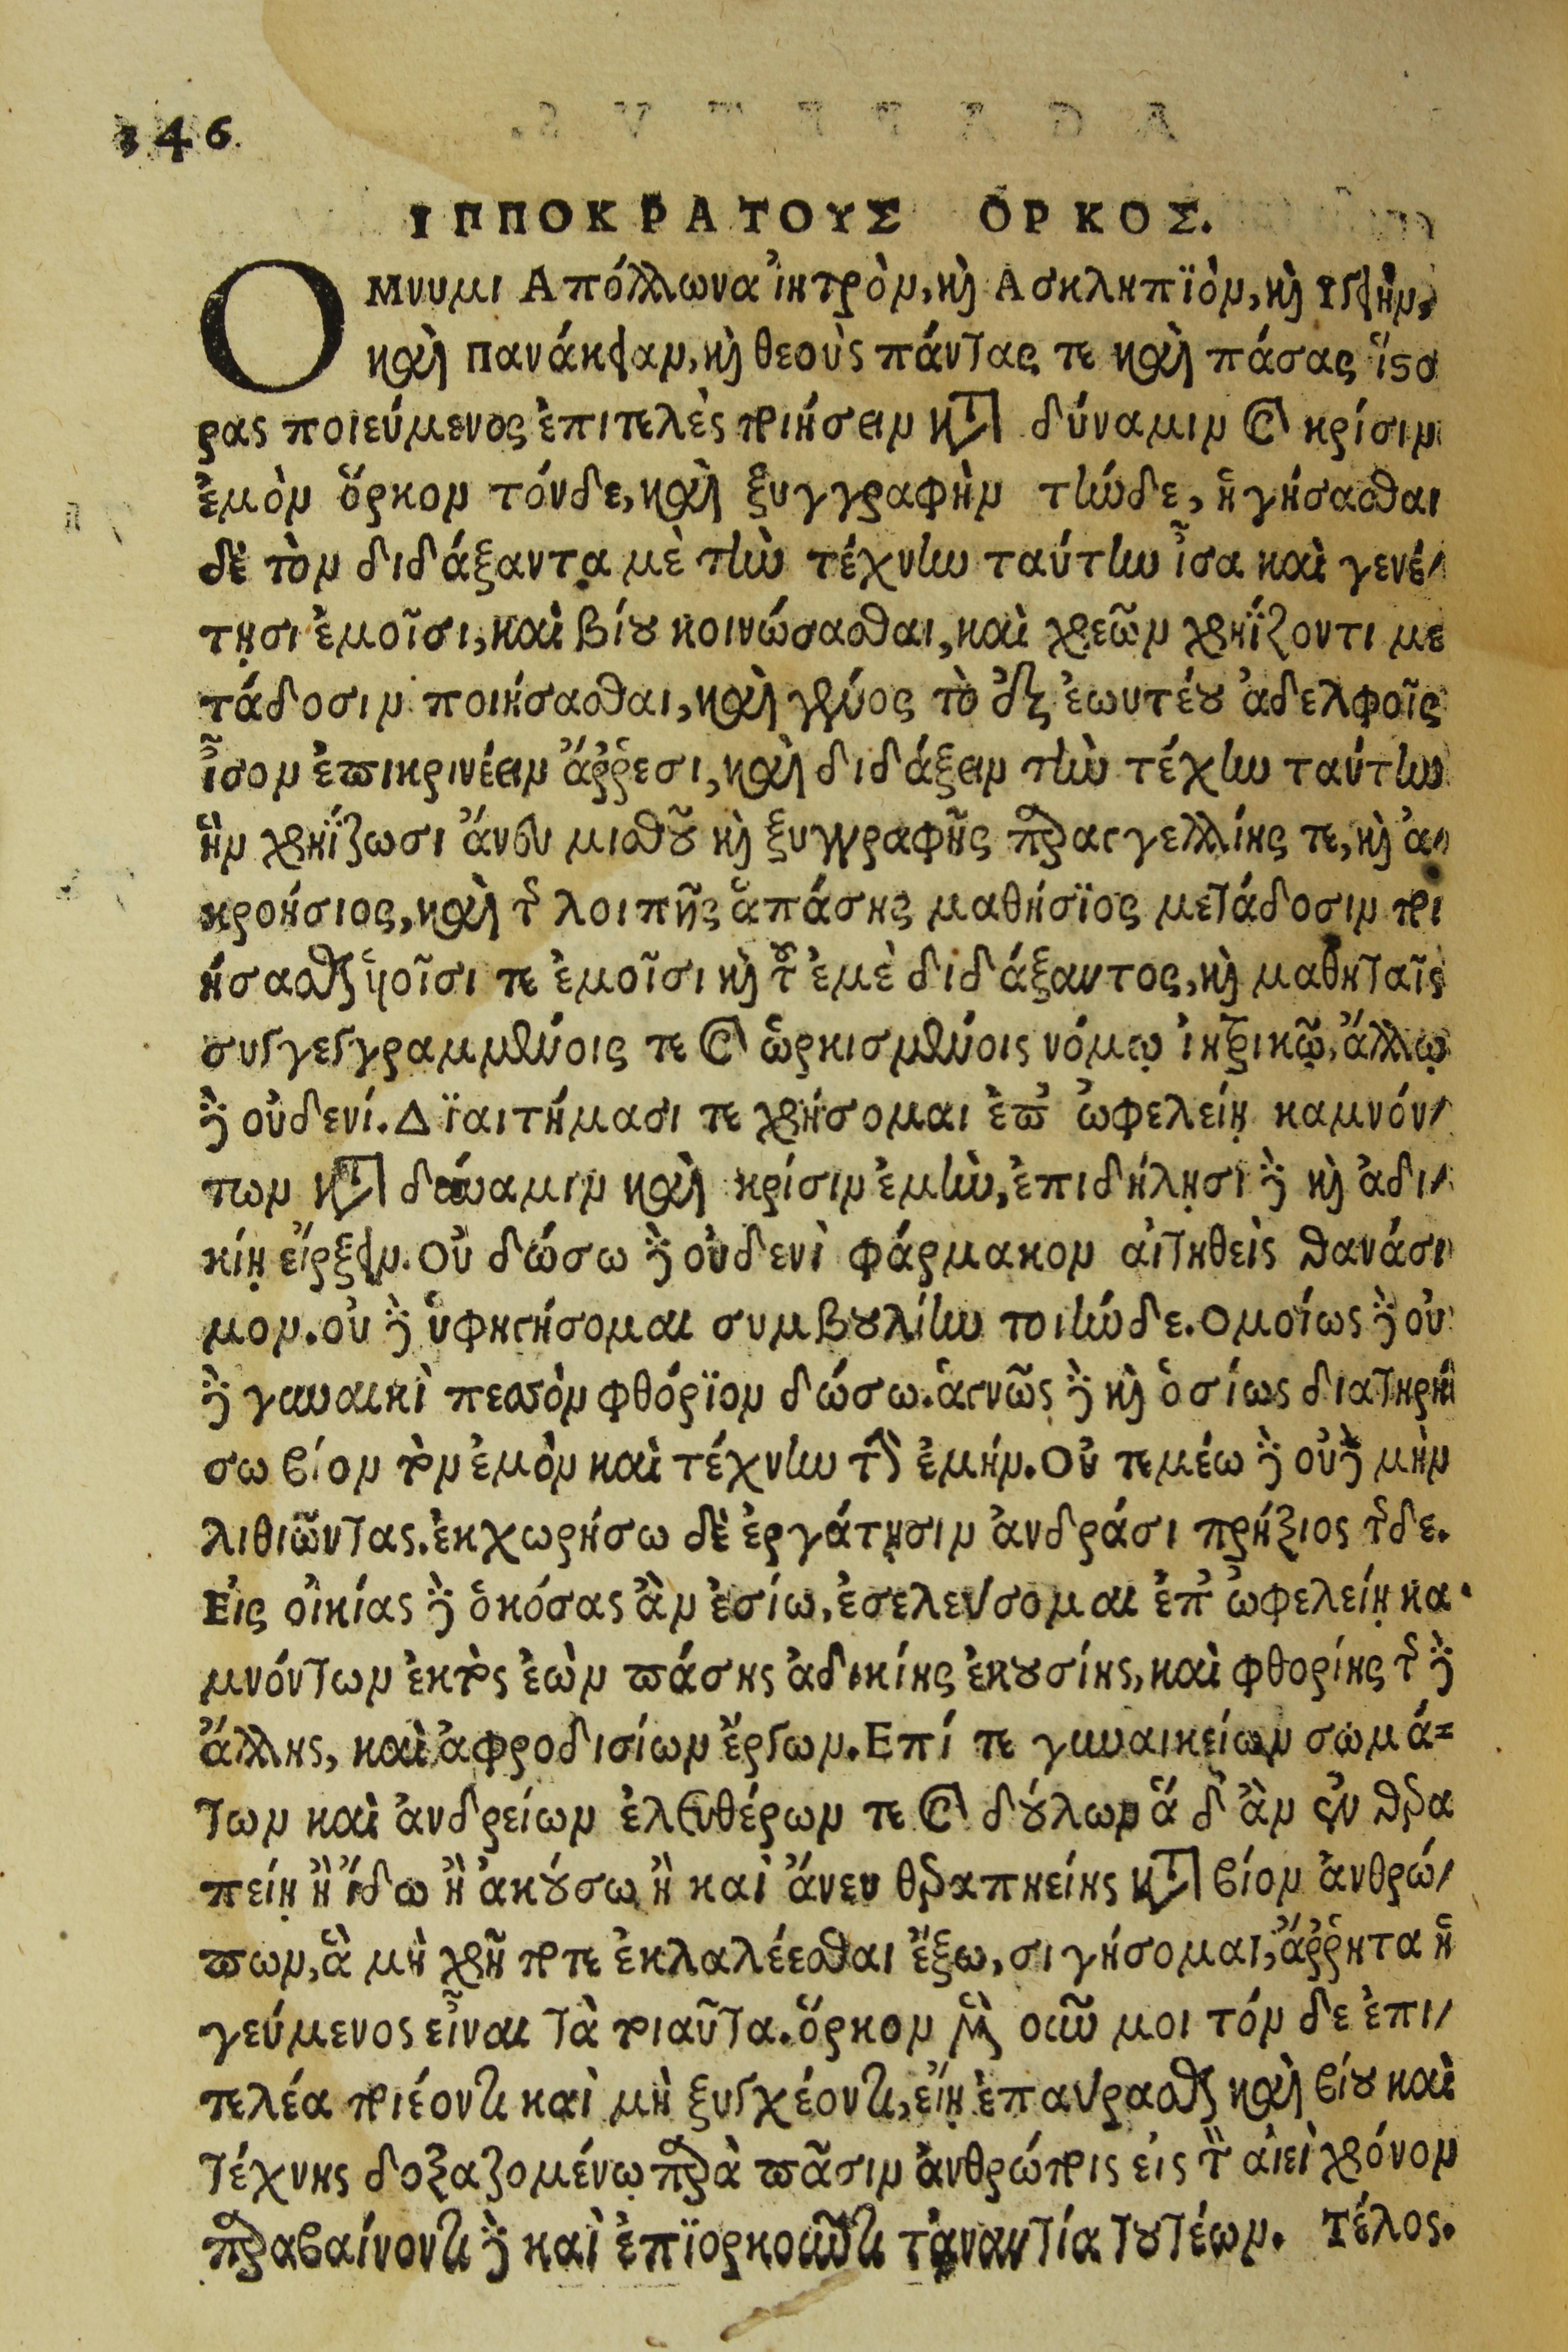 346.
ΙΠΠΟΚΡΑΤΟΥΣ ὍΡΚΟΣ.
ΟΜνυμι Απόλλωνα ἰητρὸν, καὶ Ασκληπϊὸν, καὶ Υγείην,
καὶ Πανάκειαν, καὶ θεοὺς πάντας τε καὶ πάσας ἵστο
ρας ποιεύμενος ἐπιτελὲς ποιήσειν κατὰ δύναμιν καὶ κρίσιν
ἐμὸν ὅρκον τόνδε, καὶ ξυγγραφὴν τήνδε, ἡγήσασθαι
δὲ τὸν διδάξαντα μὲ τὴν τέχνην ταύτην ἶσα καὶ γενέ/
τῃσι ἐμοῖσι, καὶ βίου κοινώσασθαι, καὶ χρεῶν χρηΐζοντι με
τάδοσιν ποιήσασθαι, καὶ γένος τὸ ἐξ ἐωυτέου ἀδελφοῖς
ἶσον ἐπικρινέειν ἄῤῥεσι, καὶ διδάξειν τὴν τέχην ταύτην
ἢν χρηΐζωσι ἄνευ μισθοῦ καὶ ξυγγραφῆς παραγγελλίης τε, καὶ ἀ/
κροήσιος, καὶ τῆς λοιπῆς ἁπάσης μαθήσϊος μετάδοσιν ποι
ήσασθαι ὑοῖσι τε ἐμοῖσι καὶ τοῦ ἐμὲ διδάξαντος, καὶ μαθηταῖς
συγγεγραμμένοις τε καὶ ὡρκισμένοις νόμῳ ἰητρικῷ, ἄλλῳ
δὲ οὐδενί. Δϊαιτήμασι τε χρήσομαι ἐπ' ὠφελείῃ καμνόν/
των κατὰ δύναμιν καὶ κρίσιν ἐμὴν, ἐπιδήλῃσι δὲ καὶ ἀδι/
κίῃ εἴρξειν. Οὐ δώσω δὲ οὐδενὶ φάρμακον αἰτηθεὶς θανάσι
μον. οὐ δὲ ὑφηγήσομαι συμβουλίην τοιήνδε. Ομοίως δὲ οὐ
δὲ γυναικὶ πεσσὸν φθόρϊον δώσω. ἁγνῶς δὲ καὶ ὁσίως διατηρή
σω βίον τὸν ἐμὸν καὶ τέχνην τὴν ἐμήν. Οὐ τεμέω δὲ οὐδὲ μὴν
λιθιῶντας. ἐκχωρήσω δὲ ἐργάτῃσιν ἀνδράσι πρήξιος τῆςδε.
Εἰς οἰκίας δὲ ὁκόσας ἂν ἐσίω, ἐσελεύσομαι ἐπ' ὠφελείῃ κα
μνόντων ἐκτὸς ἐὼν πάσης ἀδικίης ἐκουσίης, καὶ φθορίης τῆς δὲ
ἄλλης, καὶ ἀφροδισίων ἔργων. Επί τε γυναικείων σωμά=
των καὶ ἀνδρείων ἐλευθέρων τε καὶ δούλων ἅ δ' ἂν ἐν θερα
πείῃ ἢ ἴδω ἢ ἀκούσω ἢ καὶ ἄνευ θεραπηείης κατὰ βίον ἀνθρώ/
πων, ἃ μὴ χρῆ ποτε ἐκλαλέεσθαι ἔξω, σιγήσομαι, ἄῤῥητα ἡ
γεύμενος εἶναι τὰ τοιαῦτα. ὅρκον μὲν οὖν μοι τόν δε ἐπι/
τελέα ποιέοντι καὶ μὴ ξυγχέοντι, εἴῃ ἐπαύρασθαι καὶ βίου καὶ
τέχνης δοξαζομένῳ παρὰ πᾶσιν ἀνθρώποις εἰς τὸν αἰεὶ χρόνον
παραβαίνοντι δὲ καὶ ἐπϊορκοῦντι τἀναντία τουτέων. Τέλος.